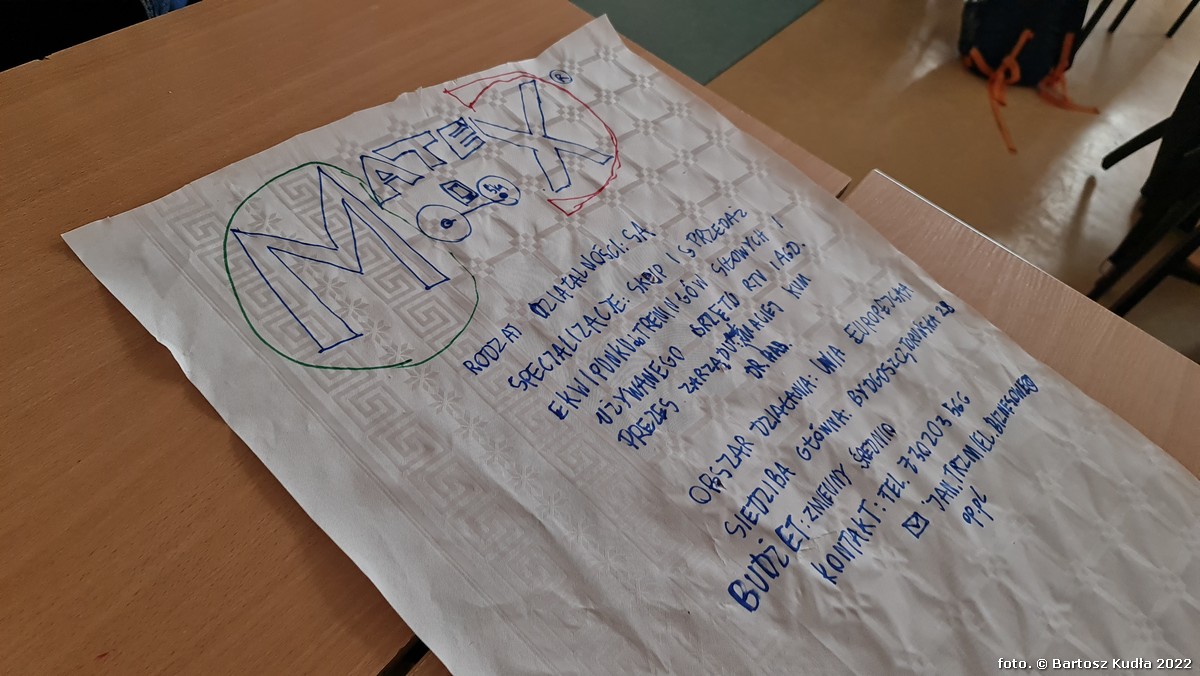 MATEX®
5kg
RODZAJ DZIAŁALNOŚCI: SA
SPECJALIZACJE: SKUP I SPRZEDAŻ
EKWIPUNKU DO TRENINGÓW SIŁOWYCH I
UŻYWANEGO SPRZĘTU RTV I AGD.
PREZES ZARZĄDU: MACIEJ KUM
DR.HAB.
OBSZAR DZIAŁANIA: UNIA EUROPEJSKA
SIEDZIBA GŁÓWNA: BYDGOSZCZ, TORUŃSKA 28
BUDŻET: ZMIENNY ŚREDNIO
KONTAKT: TEL. 730203566
JAN.TRZMIEL.BIZNESOWEO
op.pl
foto. © Bartosz Kudła 2022